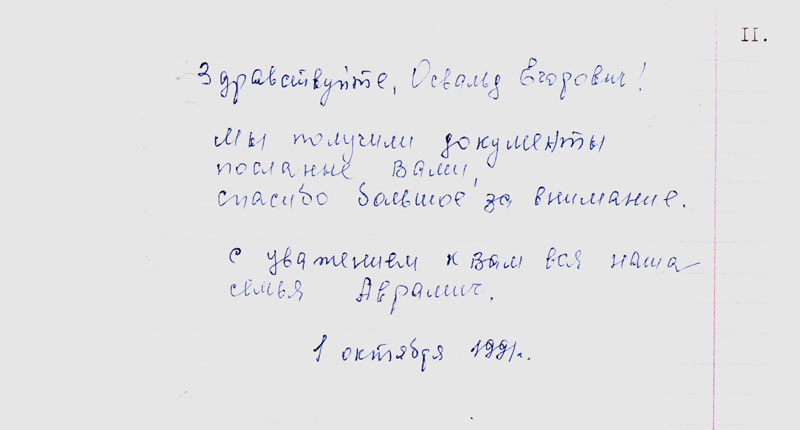 II.
Здравствуйте, Освальд Егорович!
Мы получили документы
посланне Вами,
спасибо большое за внимание.
С уважением к Вам вся наша
семья Аврамич.
1 октября 1991г.